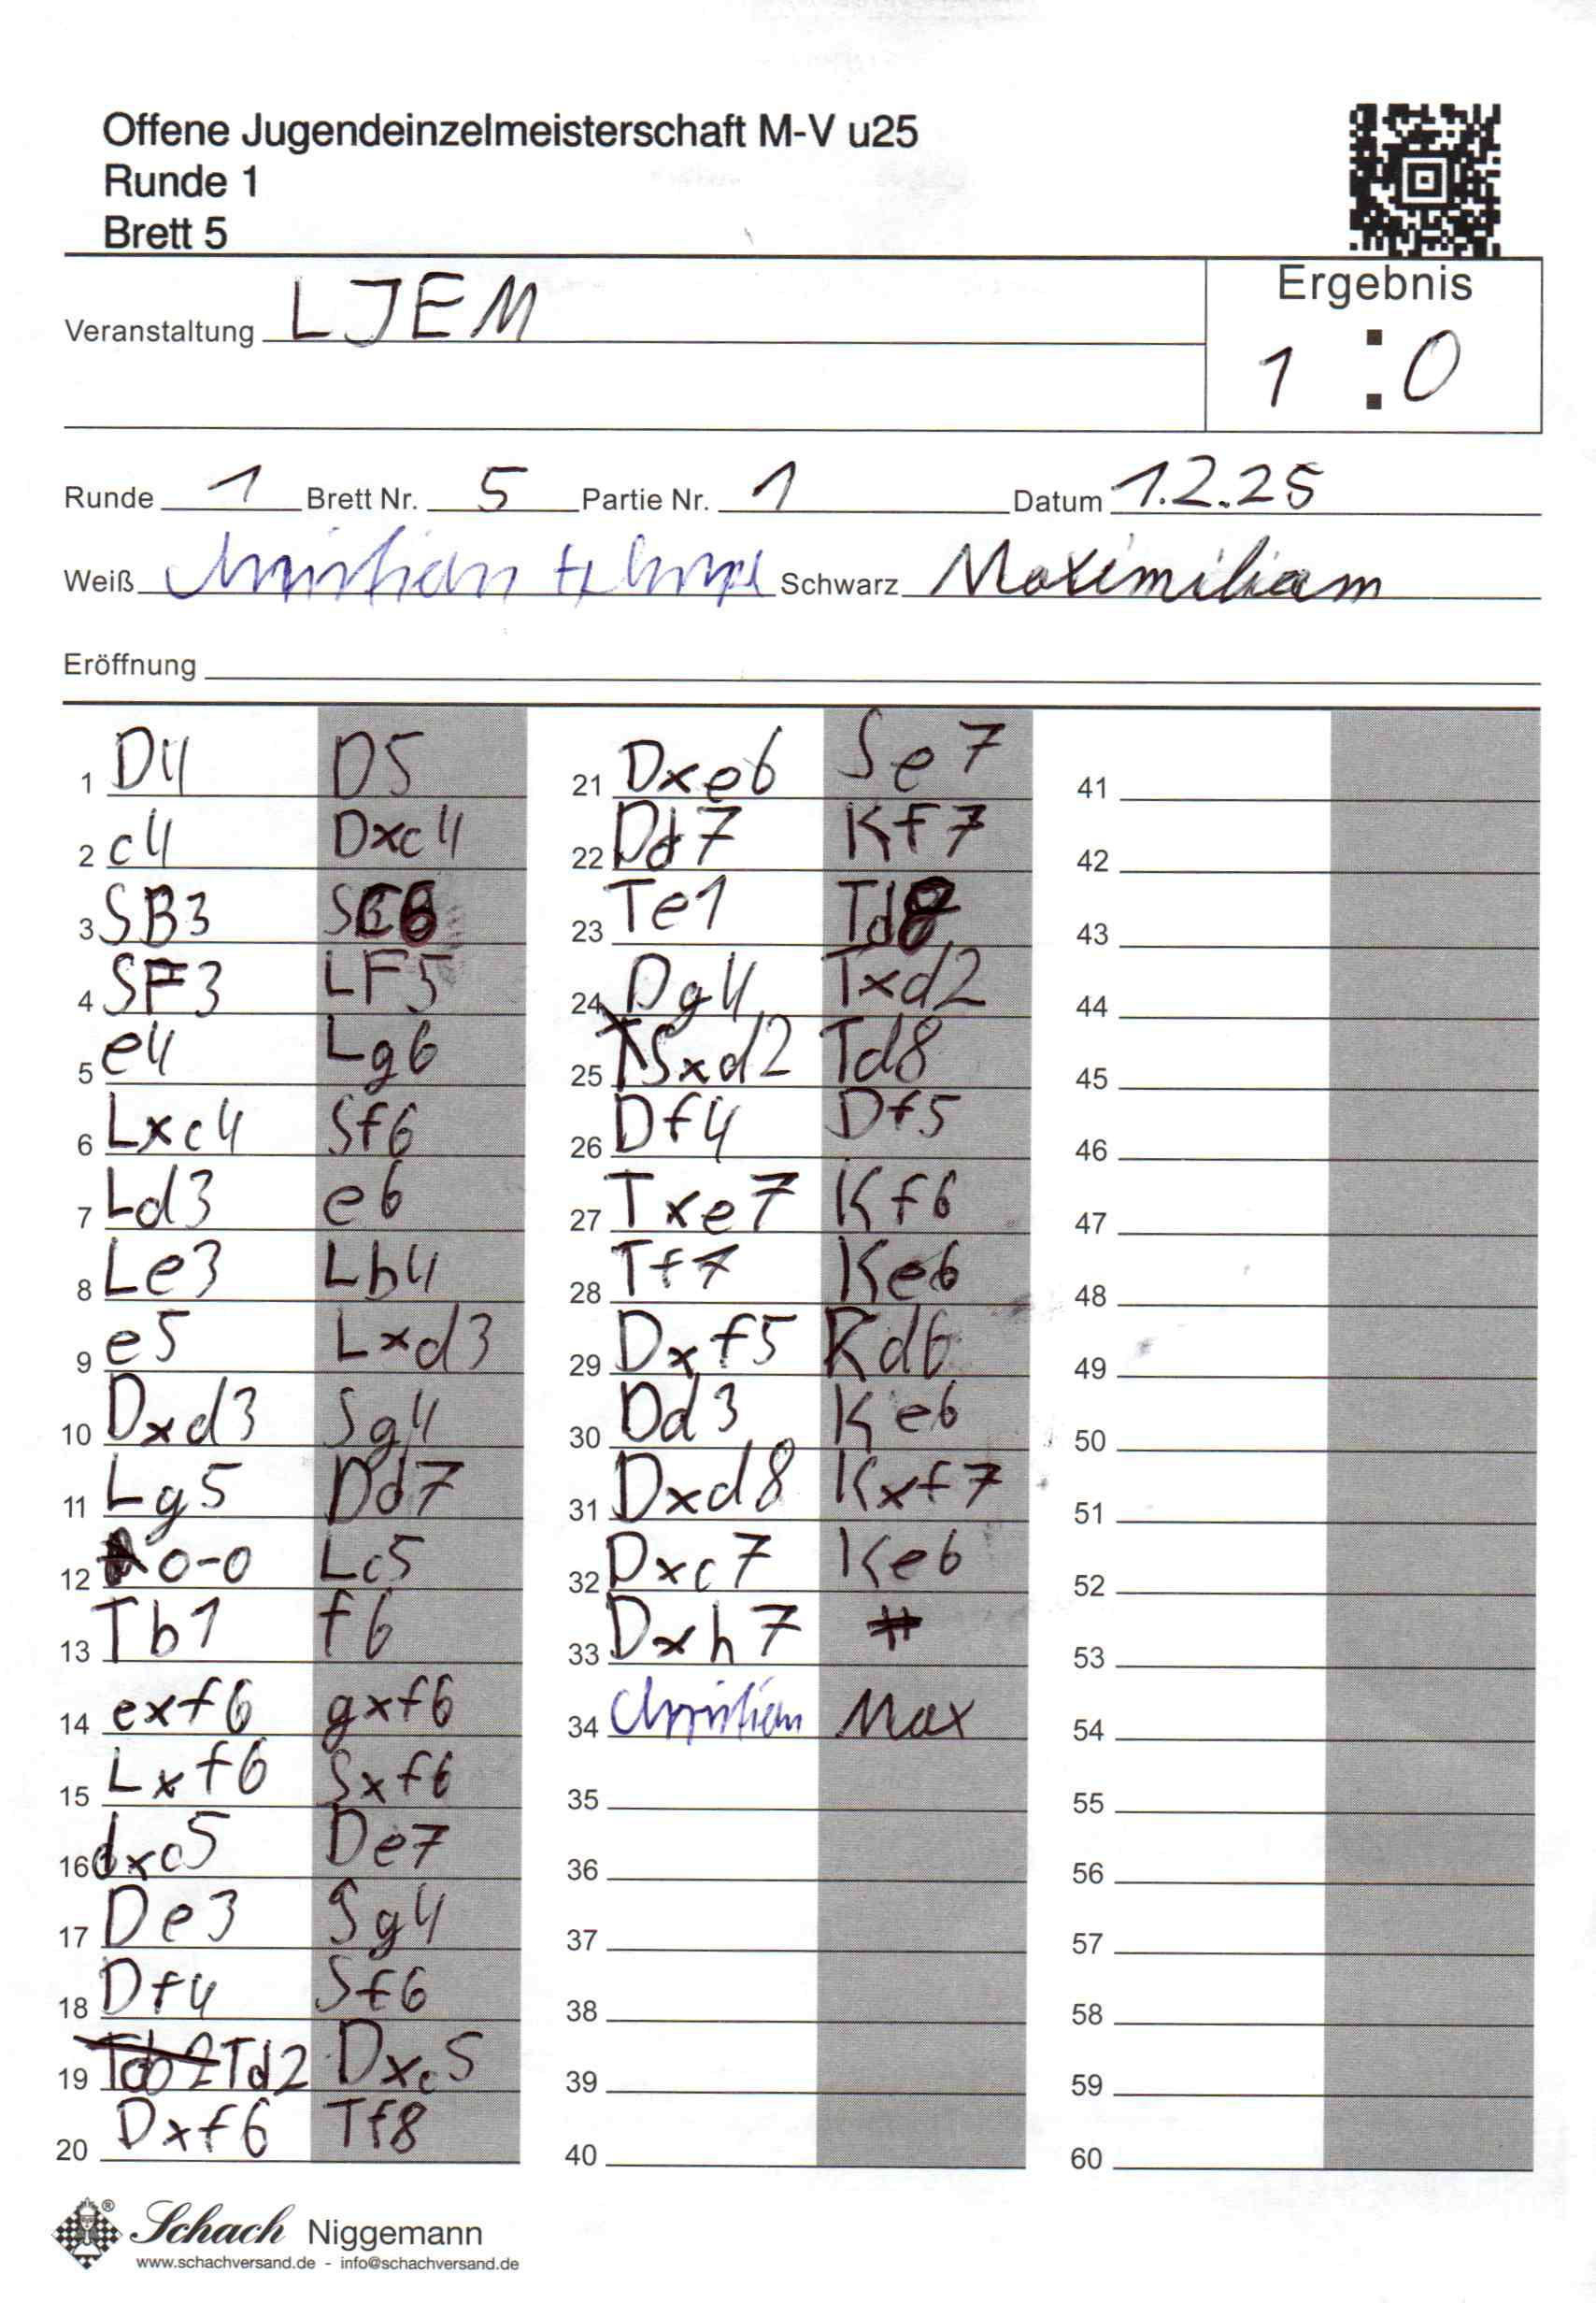 Offene Jugendeinzelmeisterschaft M-V u25
Runde 1
Brett 5
Veranstaltung LJEM
Ergebnis
1 : 0
Runde 1 Brett Nr. 5 Partie Nr. 1 Datum 1.2.25
Weiß Christian Schwarz Maximiliam
Eröffnung
1 D4 D5 21 Dxe6 Se7 41
2 c4 Dxc4 22 Dd7 Kf7 42
3 SB3 SC6 23 Te1 Td8 43
4 SF3 LF5 24 Dg4 Txd2 44
5 e4 Lg6 25 Sxd2 Td8 45
6 Lxc4 Sf6 26 Df4 Df5 46
7 Ld3 e6 27 Txe7 Kf6 47
8 Le3 Lb4 28 Tf7 Ke6 48
9 e5 Lxd3 29 Dxf5 Kd6 49
10 Dxd3 Sg4 30 Dd3 Ke6 50
11 Lg5 Dd7 31 Dxd8 Kxf7 51
12 0-0 Lc5 32 Dxc7 Ke6 52
13 Tb1 f6 33 Dxh7 # 53
14 exf6 gxf6 34 Christian Max 54
15 Lxf6 Sxf6 35 55
16 dxc5 De7 36 56
17 De3 Sg4 37 57
18 Df4 Sf6 38 58
19 Td2 Dxc5 39 59
20 Dxf6 Tf8 40 60
Schach Niggemann
www.schachversand.de - info@schachversand.de